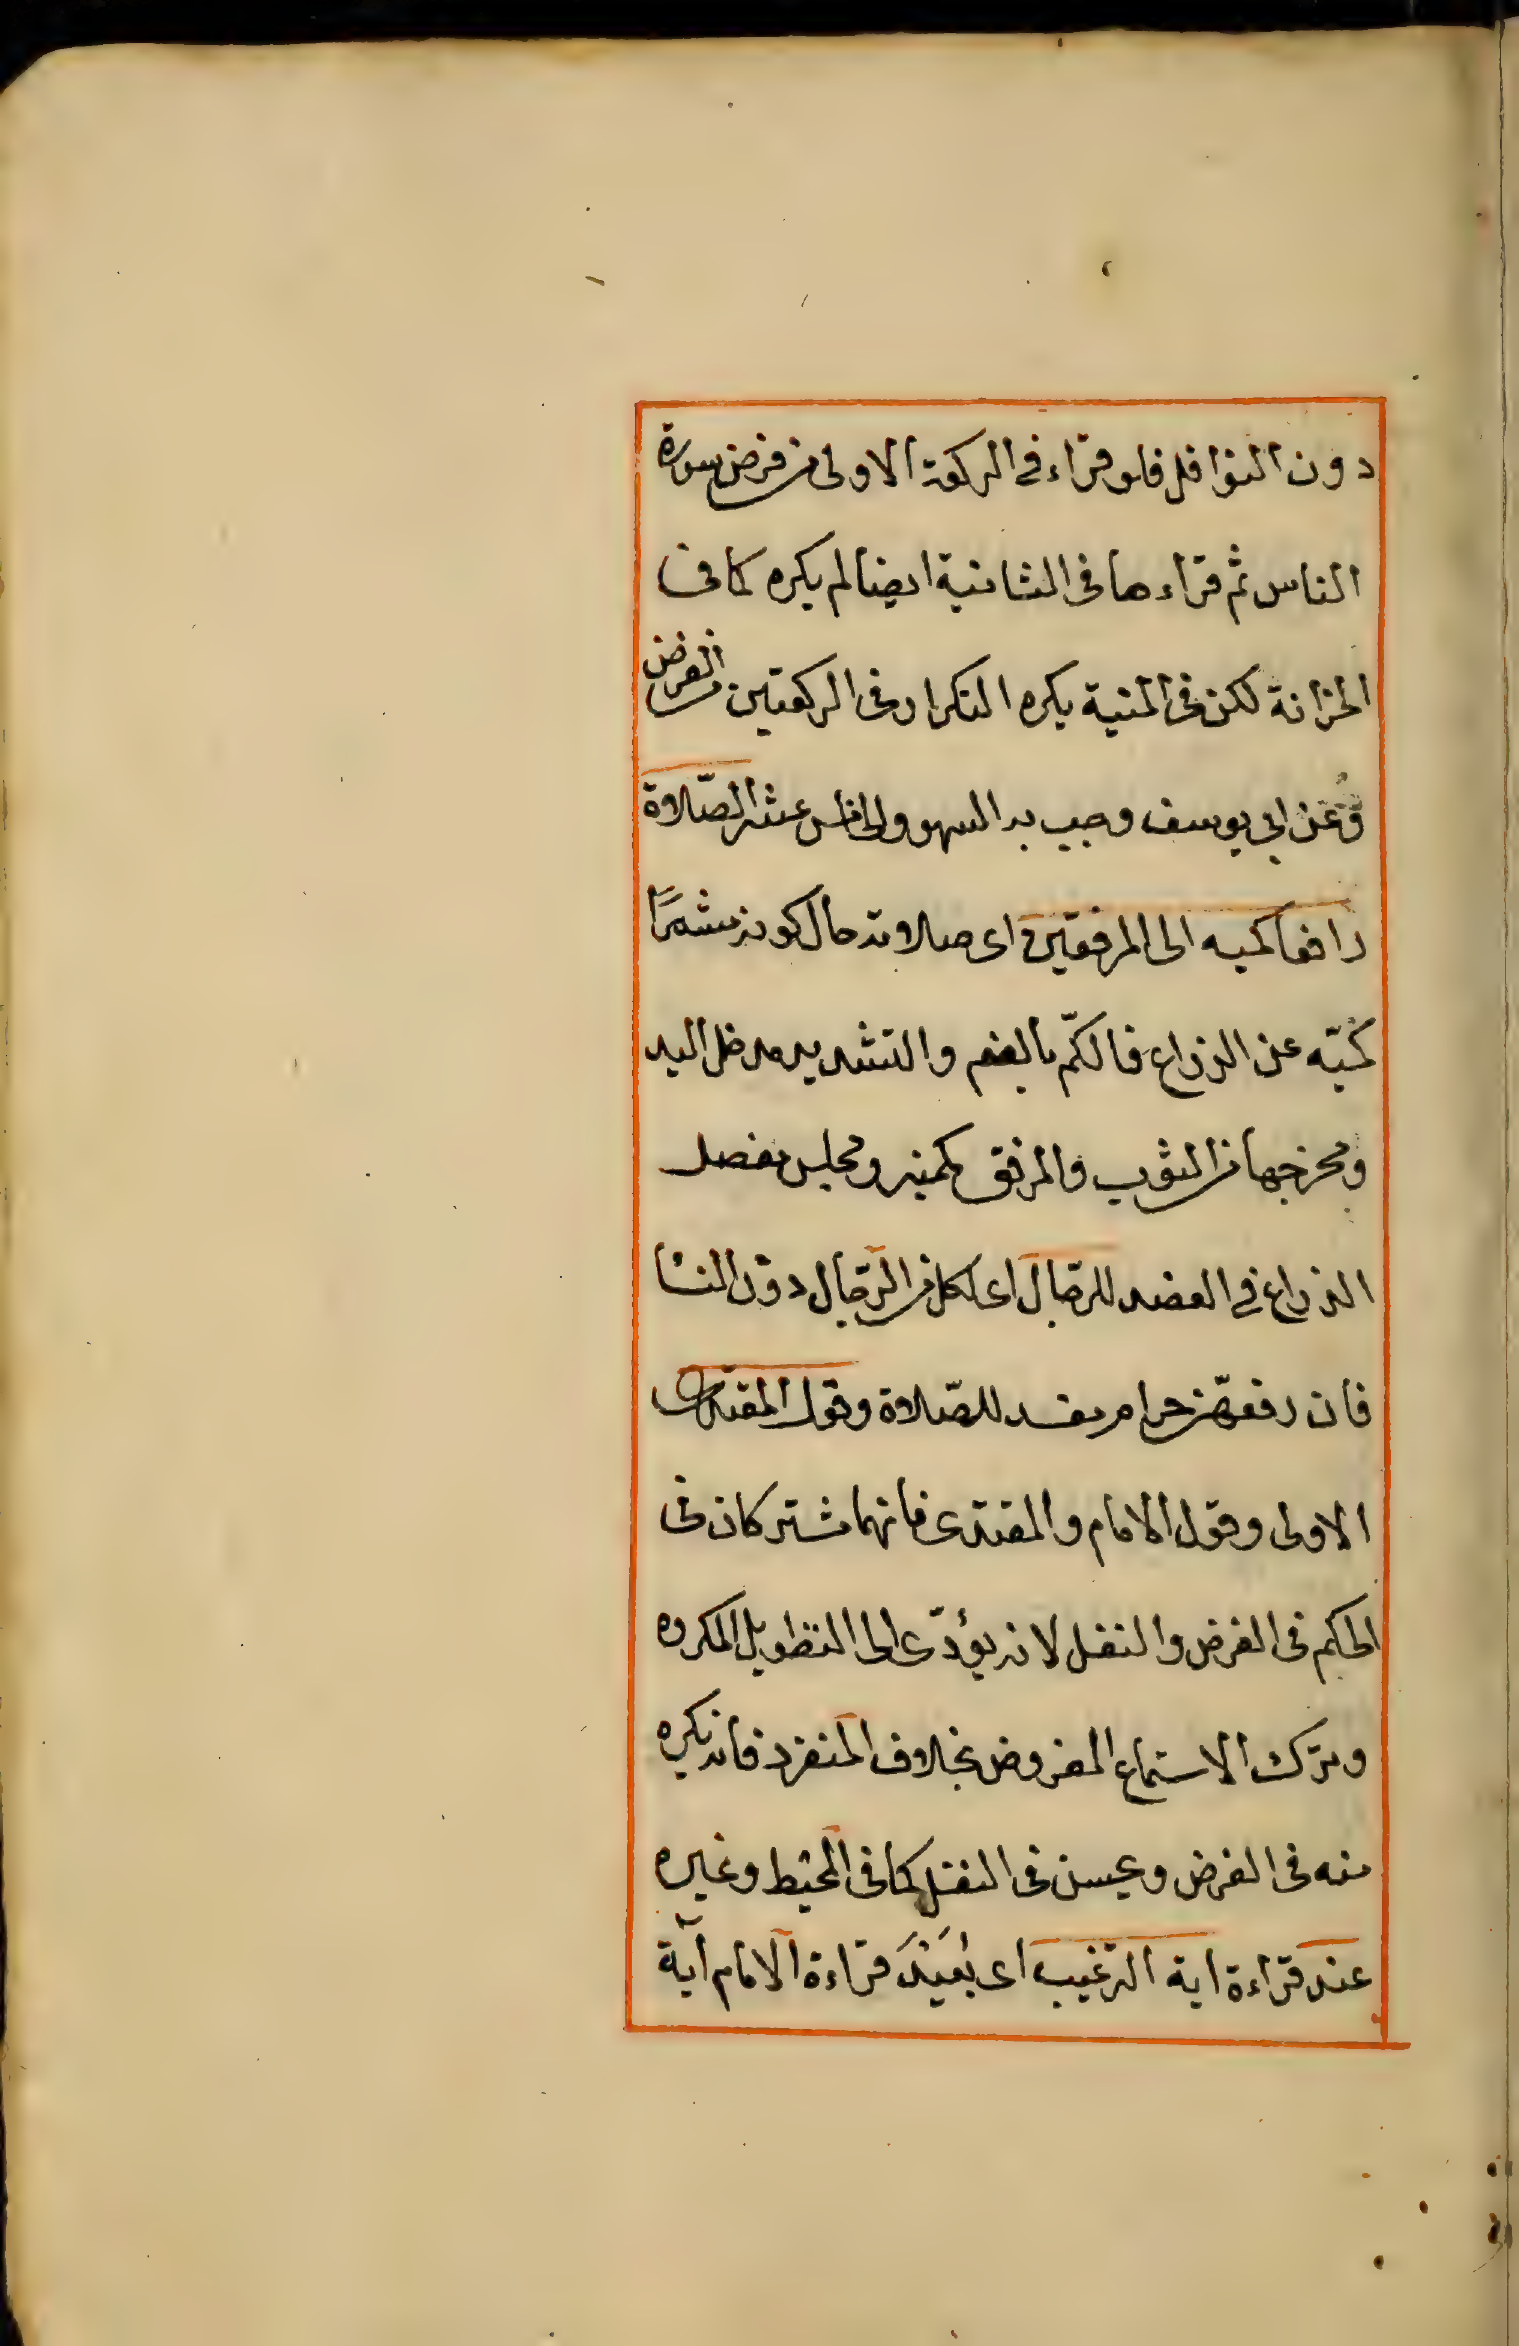 دون النوافل فلو قراء فى الركعة الاولى من فرض سورة
الناس ثم قراءها فى الثانية ايضا لم يكره كما فى
الخزانة لكن فى المنية يكره التكرار فى الركعتين من الفرض
وعن ابي يوسف وجب به السهو والخامس عشر الصّلاة
رافعا كميه الى المرفقين اى صلاته حال كونه مشمرًا
كميّه عن الذراع فالكمّ بالضم والتشديد مدخل اليد
ومخرجها من الثوب والمرفق كمنبر ومجلس مفصل
الذراع فى العضد للرّجال اى لكل من الرّجال دون النسا
فان رفعهنّ حرام مفسد للصّلاة وقول المقتدى
الاولى وقول الامام والمقتدى فانهما مشتركان فى
الحكم فى الفرض والنفل لانه يؤدّى الى التطويل المكروه
وترك الاستماع المفروض بخلاف المنفرد فانه يكره
منه فى الفرض ويحسن فى النفل كما فى المحيط وغيره
عند قراءة اية الترغيب اى بُعَيْدَ قراءة الامام آية